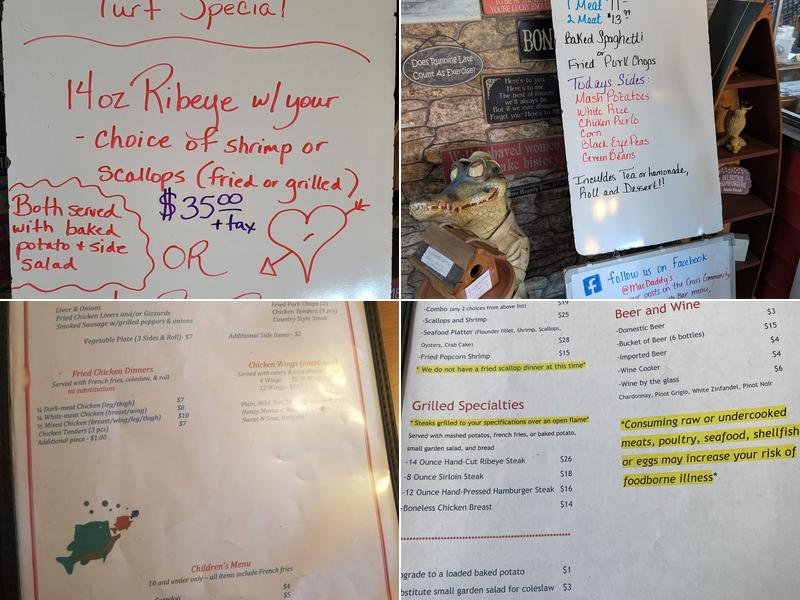 Turf Special
14oz Ribeye w/your
- Choice of shrimp or
Scallops (fried or grilled)
$35.00
+ tax
Both served
with baked
potato + side
Salad
OR
YOU'RE LUCKY ENOUGH
BON
Does Running Late
Count As Exercise?
Here's to you,
Here's to me,
The best of friends
we'll always be.
But if we ever disagree,
Forget you - Here's to ME
Well behaved women
make history
1 Meat $11
2 Meat $13.99
Baked Spaghetti
or
Fried Pork Chops
Todays Sides:
Mash Potatoes
White Rice
Chicken Purlo
Corn
Black Eye Peas
Green Beans
Inculdes Tea or lemonade,
Roll and Dessert!!
follow us on Facebook
@MacDaddy's
our posts on the Cross Community
Bar menu,
Liver & Onions
Fried Chicken Livers and/or Gizzards
Smoked Sausage w/grilled peppers & onions
Fried Pork Chops (2)
Chicken Tenders (4 pcs)
Country Style Steak
Vegetable Plate (3 Sides & Roll)- $7
Additional Side Items - $2
Fried Chicken Dinners
Served with French fries, coleslaw, & roll
no substitutions
¼ Dark-meat Chicken (leg/thigh) $7
¼ White-meat Chicken (breast/wing) $8
½ Mixed Chicken (breast/wing/leg/thigh) $10
Chicken Tenders (3 pcs) $7
Additional piece - $1.00
Chicken Wings
Served with celery &
4 Wings -
12 Wings -
Plain, Mild, Hot,
Honey Mustard,
Sweet N Sour,
Children's Menu
10 and under only – all items include French fries
$4
$5
-Combo (any 2 choices from above list) $19
-Scallops and Shrimp $25
-Seafood Platter (Flounder fillet, Shrimp, Scallops,
Oysters, Crab Cake) $28
-Fried Popcorn Shrimp $15
* We do not have a fried scallop dinner at this time*
Grilled Specialties
*Steaks grilled to your specifications over an open flame*
Served with mashed potatoes, french fries, or baked potato,
small garden salad, and bread
-14 Ounce Hand-Cut Ribeye Steak $26
-8 Ounce Sirloin Steak $18
-12 Ounce Hand-Pressed Hamburger Steak $16
-Boneless Chicken Breast $14
pgrade to a loaded baked potato $1
bstitute small garden salad for coleslaw $3
Beer and Wine
-Domestic Beer $3
-Bucket of Beer (6 bottles) $15
-Imported Beer $4
-Wine Cooler $4
-Wine by the glass $6
Chardonnay, Pinot Grigio, White Zinfandel, Pinot Noir
*Consuming raw or undercooked
meats, poultry, seafood, shellfish
or eggs may increase your risk of
foodborne illness*